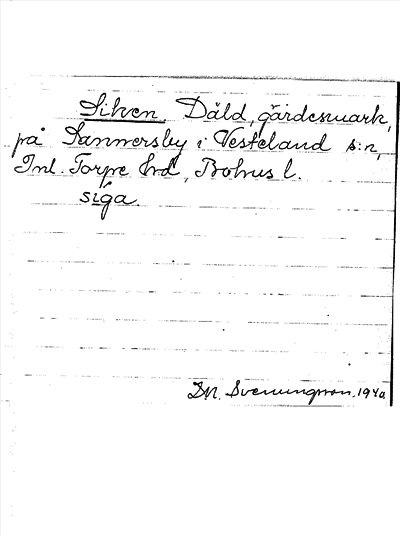 Silven. Däld, gärdesmark,
på Sannersby i Vesteland s:n,
Inl. Torpe hd, Bohus l.
siga
D.N. Svenungsson. 1940